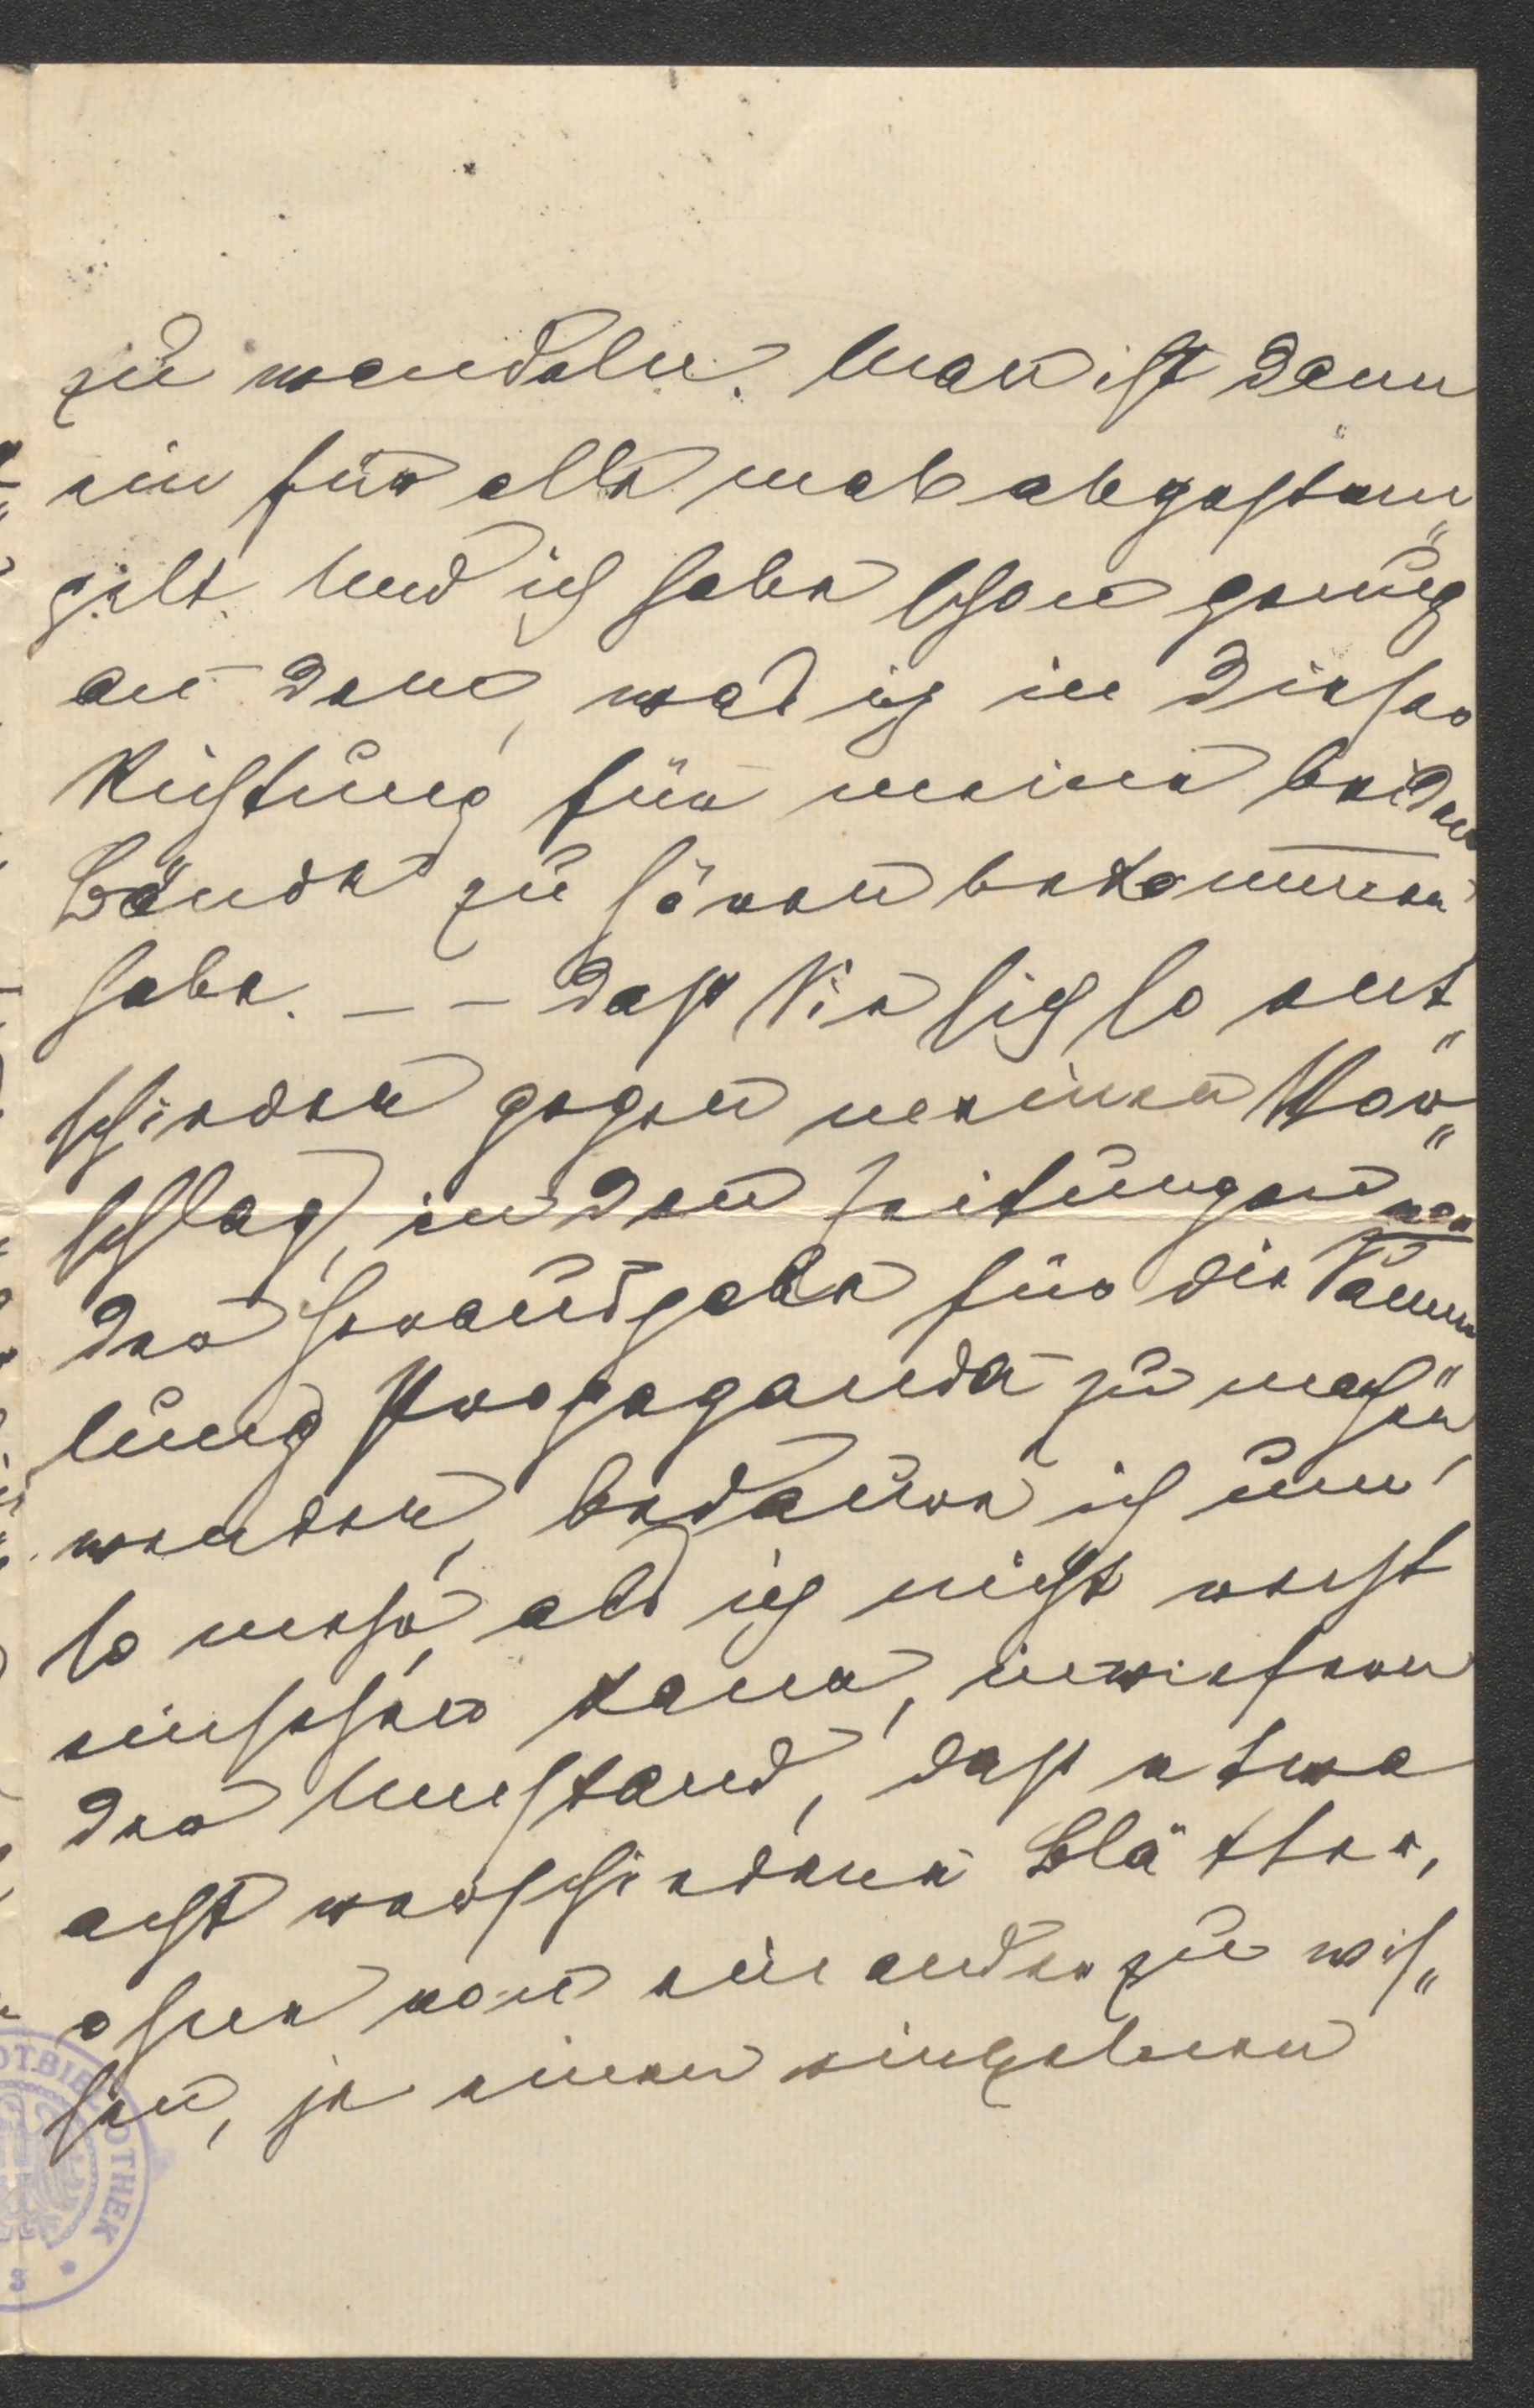 zu wandeln. Man ist dann
ein für alle mal abgestem„
pelt. Und ich habe schon genug
an dem, was ich in dieser
Richtung für meine beiden
Bände zu hören bekommen
habe. – – Dass Sie sich so ent„
schieden gegen meinen Vor„
schlag, in den Zeitungen vor
der Herausgabe für die Samm„
lung Propaganda zu machen,
wenden, bedaure ich um
so mehr, als ich nicht recht
einsehen kann, inwiefern
der Umstand, dass etwa
acht verschiedene Blätter,
ohne von einander zu wis„
sen, je einen einzelnen
OTBIBLIOTHEK